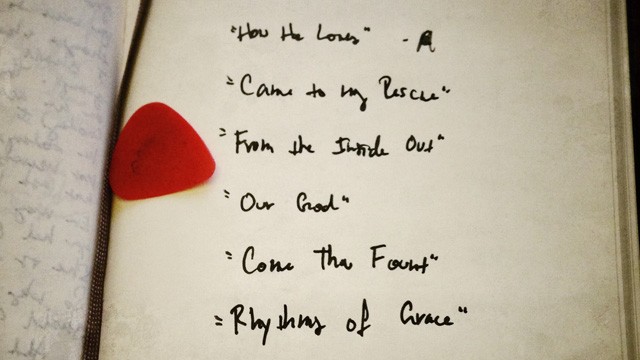 "How He Loves" - A
"Came to my Rescue"
"From the Inside Out"
"Our God"
"Come Thou Fount"
"Rhythms of Grace"